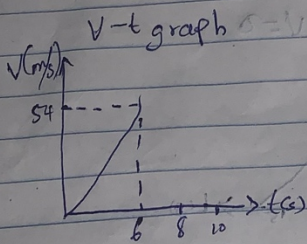 V-t graph
V(m/s)
54
6 8 10 t(s)